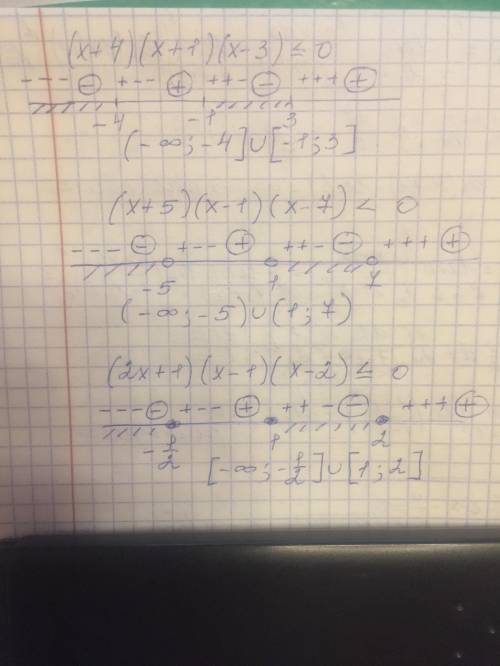 (x+4)(x+1)(x-3) ≤ 0
--- ⊖ +-- ⊕ ++- ⊖ +++ ⊕
-4 -1 3
(-∞; -4] ∪ [-1; 3]
(x+5)(x-1)(x-7) < 0
--- ⊖ +-- ⊕ ++- ⊖ +++ ⊕
-5 1 7
(-∞; -5) ∪ (1; 7)
(2x+1)(x-1)(x-2) ≤ 0
--- ⊖ +-- ⊕ ++- ⊖ +++ ⊕
-1/2 1 2
[-∞; -1/2] ∪ [1; 2]